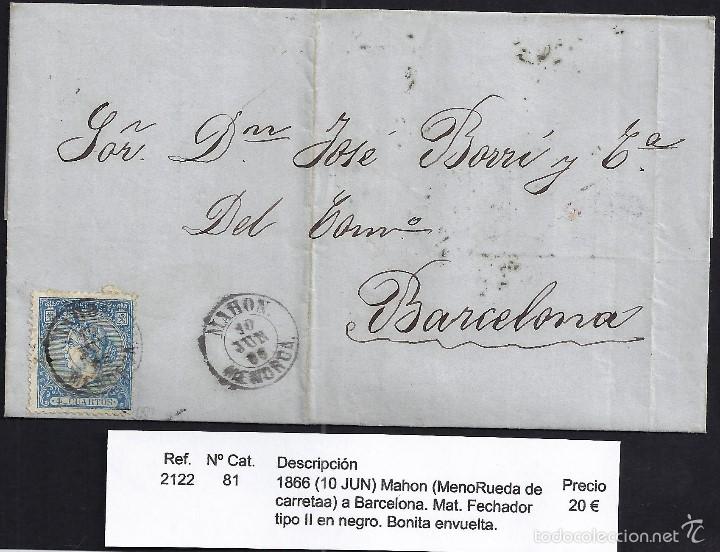 Sor. Dn. José Borri y Ca
Del Comº
Barcelona
MAHON.
10
JUN
66
MENORCA
4 CUARTOS
Ref. Nº Cat. Descripción Precio
2122 81 1866 (10 JUN) Mahon (MenoRueda de 20 €
carretaa) a Barcelona. Mat. Fechador
tipo II en negro. Bonita envuelta.
todocoleccion